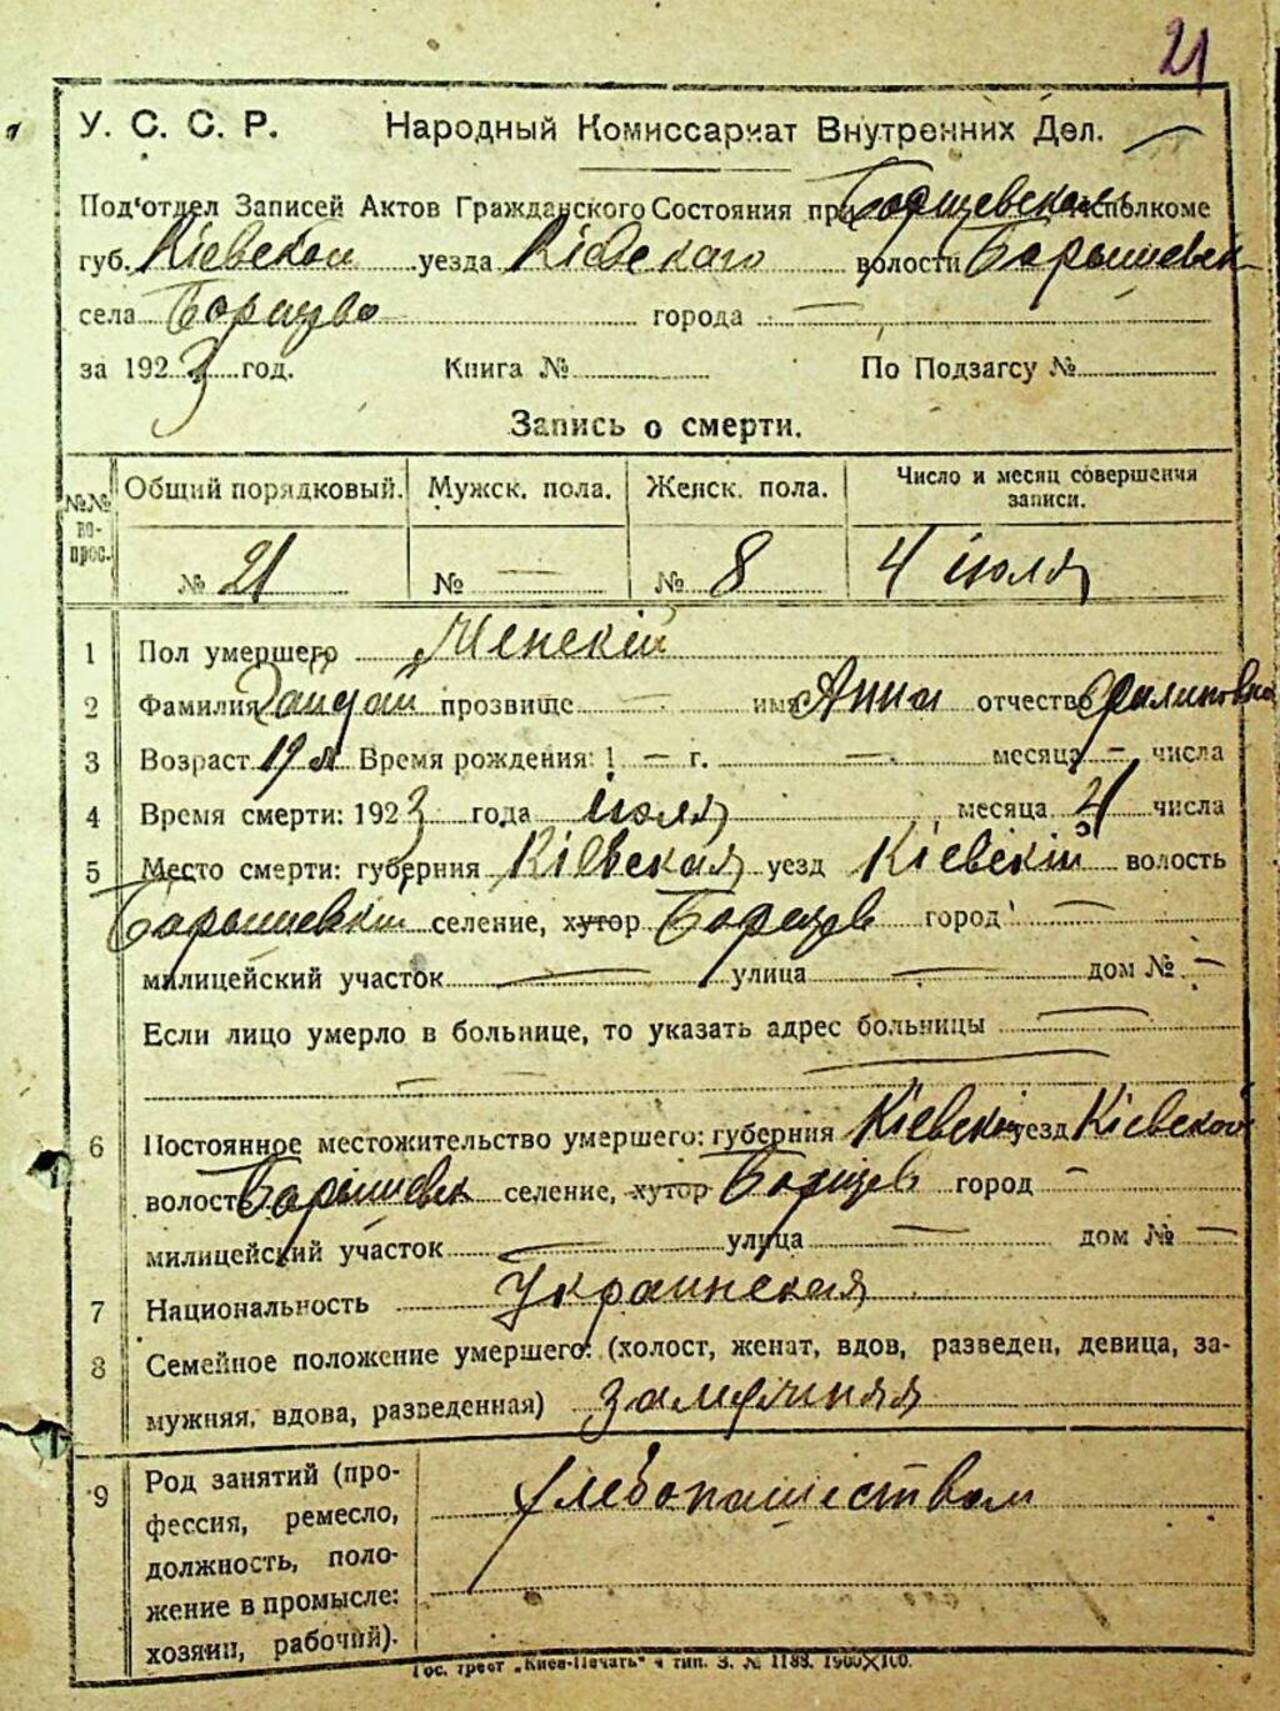 21
У. С. С. Р. Народный Комиссариат Внутренних Дел.
Под'отдел Записей Актов Гражданского Состояния при Борщевском исполкоме
губ. Кіевской уезда Кіевскаго волости Барышевск
села Борщево города —
за 1923 год. Книга № По Подзагсу №
Запись о смерти.
№№ вопрос. Общий порядковый. Мужск. пола. Женск. пола. Число и месяц совершения записи.
№ 21 № — № 8 4 июля
1 Пол умершего Женскій
2 Фамилия прозвище — имя Анна отчество Филиповна
3 Возраст 19 л Время рождения: 1 — г. — месяца — числа
4 Время смерти: 1923 года июля месяца 4 числа
5 Место смерти: губерния Кіевская уезд Кіевскій волость
Барышевскій селение, хутор Борщев город —
милицейский участок — улица — дом № —
Если лицо умерло в больнице, то указать адрес больницы —
— —
6 Постоянное местожительство умершего: губерния уезд Кіевской
волость Барышевск селение, хутор Борщев город —
милицейский участок — улица — дом № —
7 Национальность Украинская
8 Семейное положение умершего: (холост, женат, вдов, разведен, девица, за-
мужняя, вдова, разведенная) замужняя
9 Род занятий (про-
фессия, ремесло,
должность, поло-
жение в промысле:
хозяин, рабочий).
хлебопашеством
Гос. трест „Киев-Печать" 4 тип. З. № 1188. 1900×100.